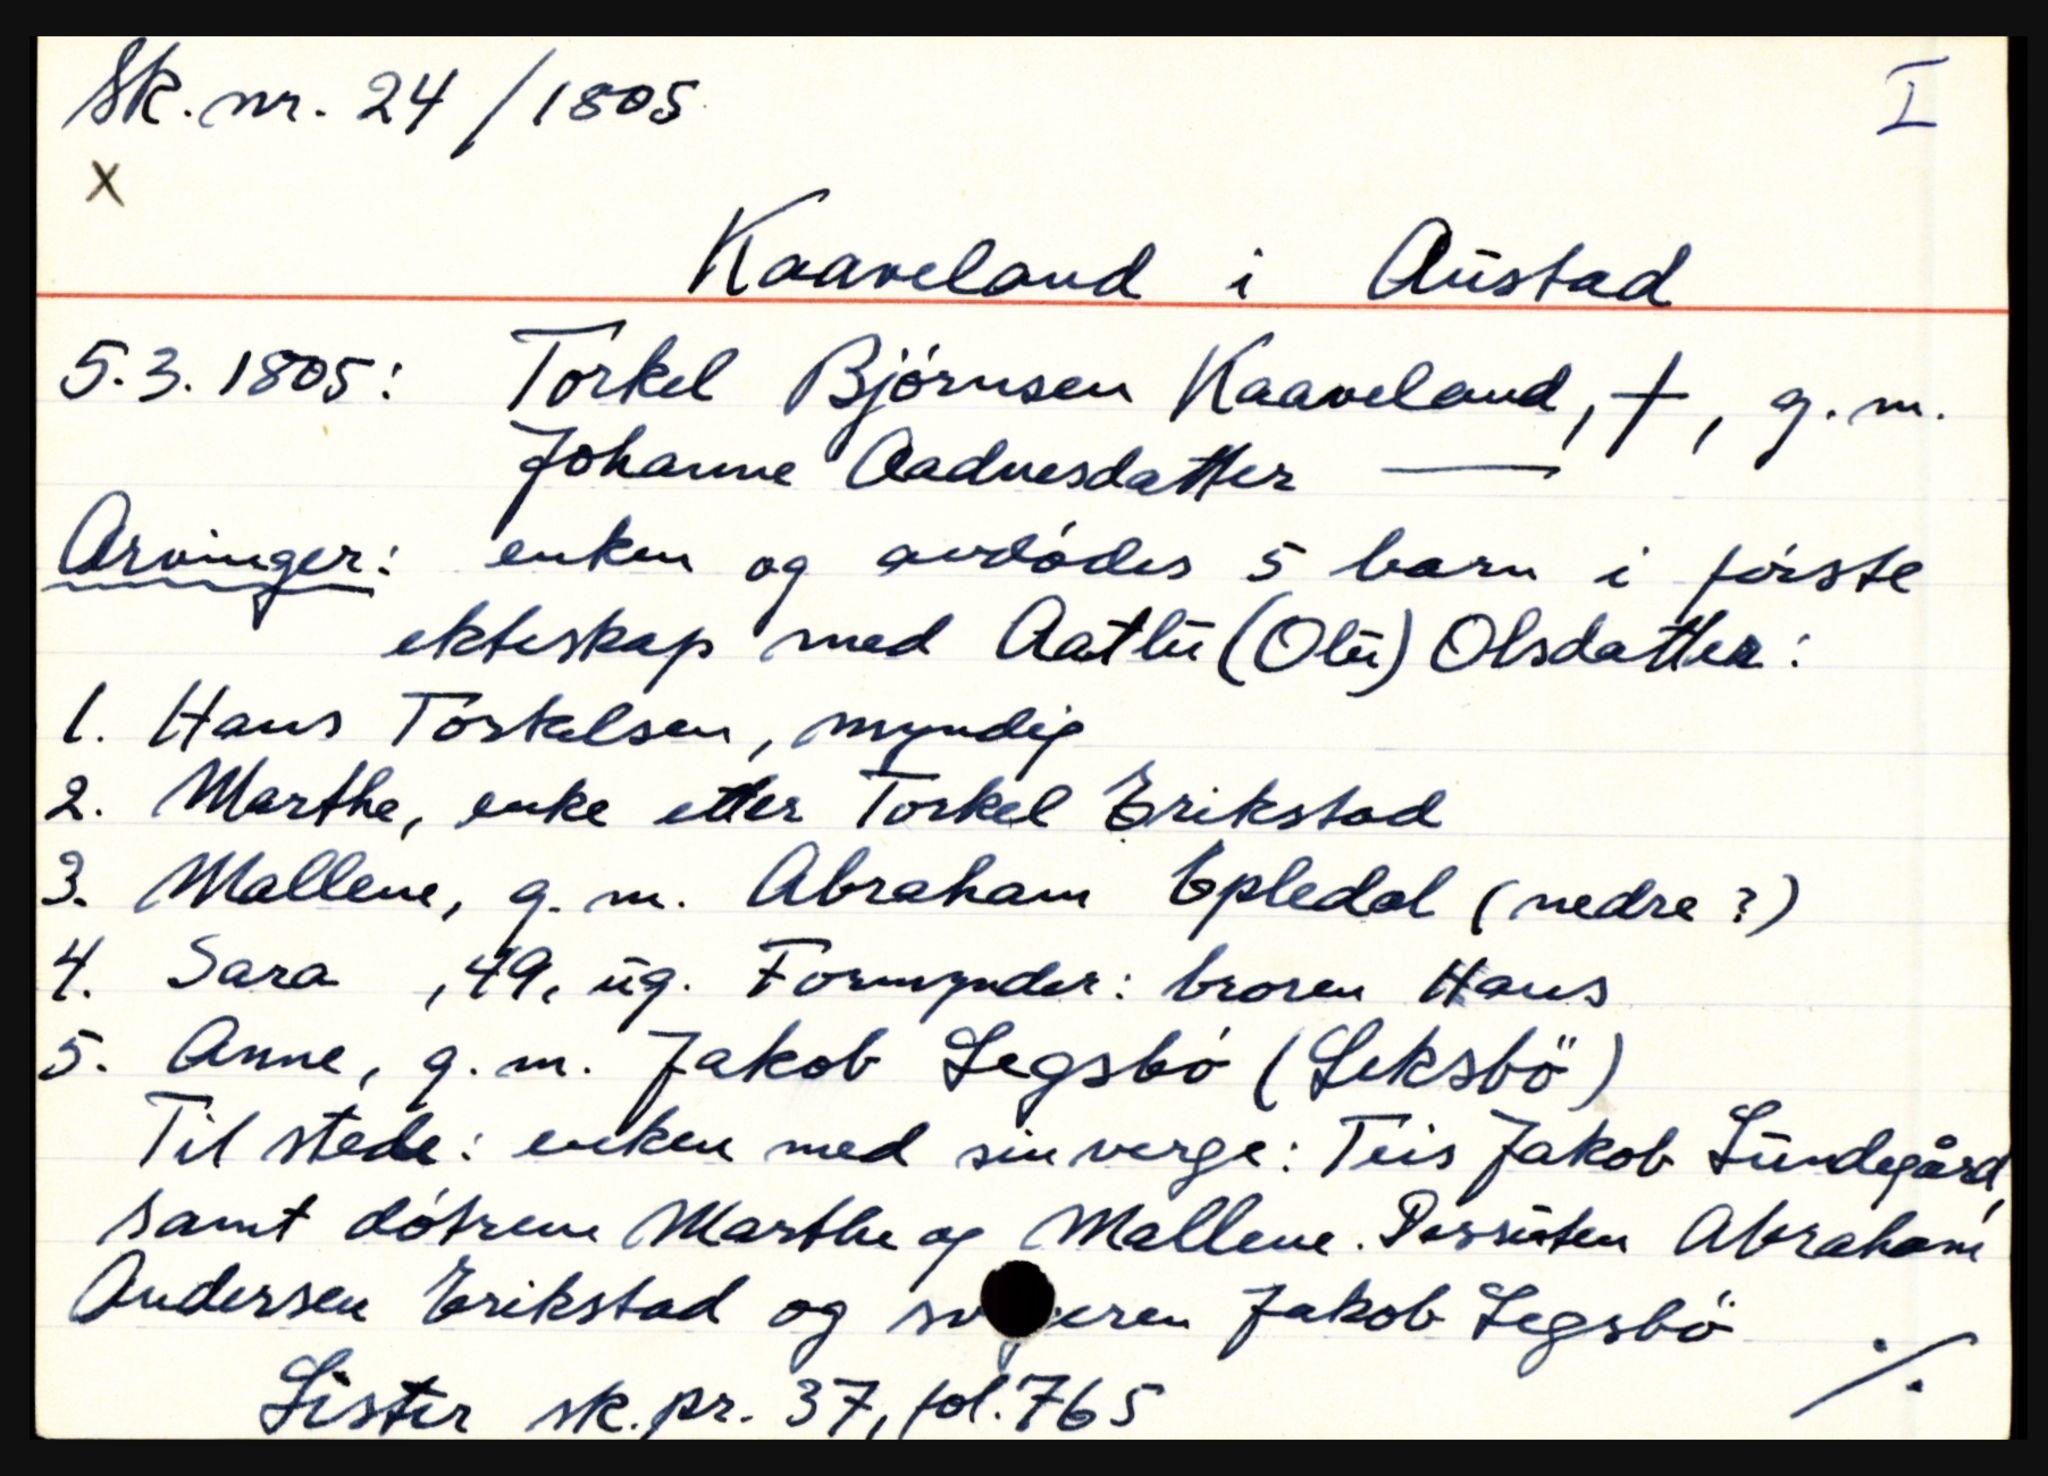 Sk. nr. 24/1805
I
X
Kaaveland i Austad
5.3.1805: Torkel Bjørnsen Kaaveland, †, g. m.
Johanne Aadnesdatter —
Arvinger: enken og avdødes 5 barn i første
ekteskap med Aatlu (Olu) Olsdatter:
1. Hans Torkelsen, myndig
2. Marthe, enke etter Torkel Erikstad
3. Mallene, g. m. Abraham Epledal (nedre?)
4. Sara , 49, ug. Formynder: broren Hans
5. Anne, g. m. Jakob Legsbø (Leksbö)
Til stede: enken med sin verge: Teis Jakob Lundegård,
samt døtrene Marthe og Mallene. Dessuten Abraham
Andersen Erikstad og Jakob Legsbø
Lister sk. pr. 37, fol. 765
./.